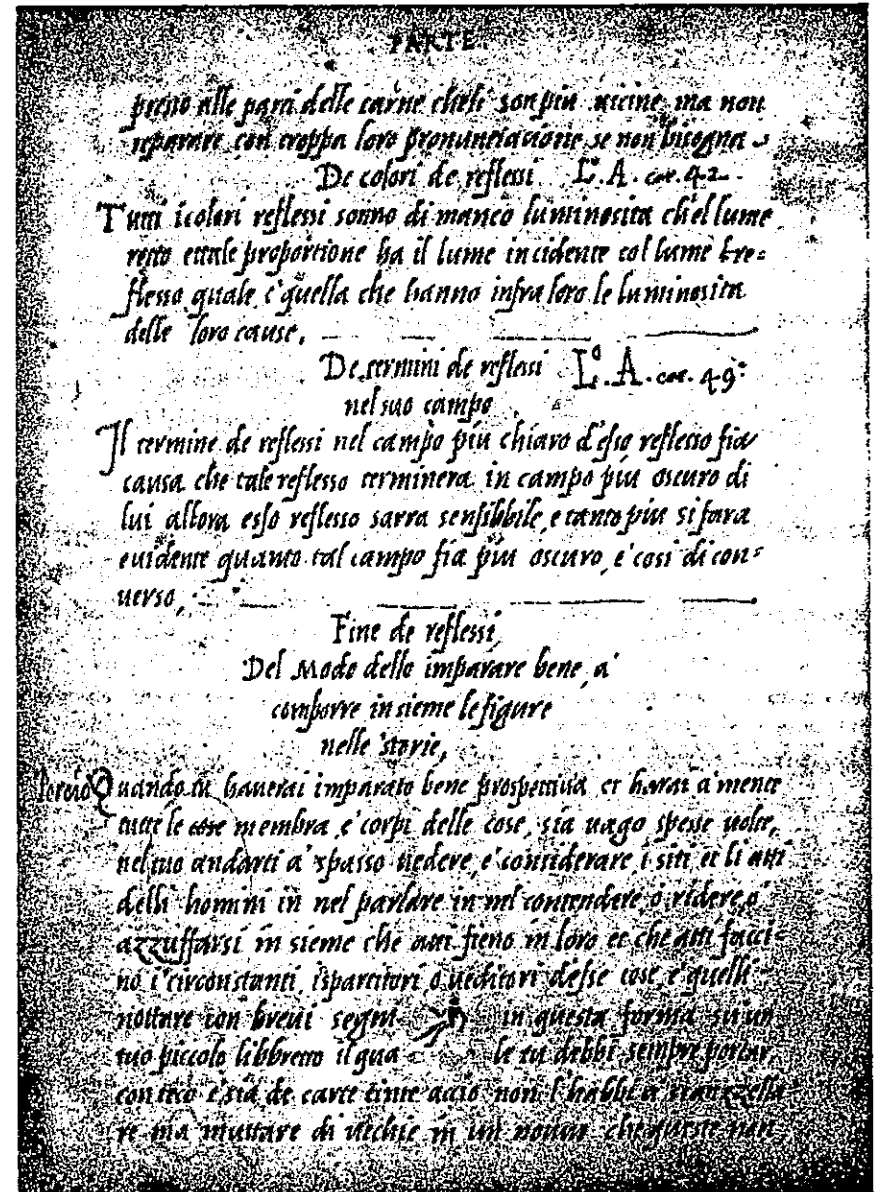 PARTE
presso alle parti delle carne cheli son piu uicine ma non
separare con troppa loro pronunciatione se non bisogna
De colori de reflessi L.º A. car. 42.
Tutti icolori reflessi sonno di manco luminosita ch'el lume
retto ettale proportione ha il lume incidente col lume kre=
flesso quale è quella che hanno infra loro le luminosita
delle loro cause.
De termini de reflessi L.º A. car. 49:
nel suo campo
Il termine de reflessi nel campo piu chiaro d'esso reflesso fia
causa che tale reflesso terminera in campo piu oscuro di
lui allora esso reflesso sarra sensibbile, e tanto piu si fara
euidente quanto tal campo fia piu oscuro, e' cosi di con=
uerso,
Fine de reflessi,
Del Modo dello imparare bene, a'
comporre insieme le figure
nelle 'storie,
Quando tu hauerai imparato bene prospettiua et harai a' mente
tutte le cose membra, e' corpi delle cose, sia uago spesse uolte,
nel tuo andarti a' spasso uedere, e' considerare, i siti et li atti
delli homini in nel parlare in nel contendere, o' ridere, o'
azzuffarsi in sieme che atti fieno in loro et che atti facci=
no i' circonstanti, ispartitori o ueditori d'esse cose, e quelli
nottare con breui segni in questa forma su un
tuo piccolo libbretto il qua= le tu debbi sempre portar
con teco e' sia de carte tinte accio non l'habbi a scanzzella
re ma muttare di uechie in un nouuo che queste non